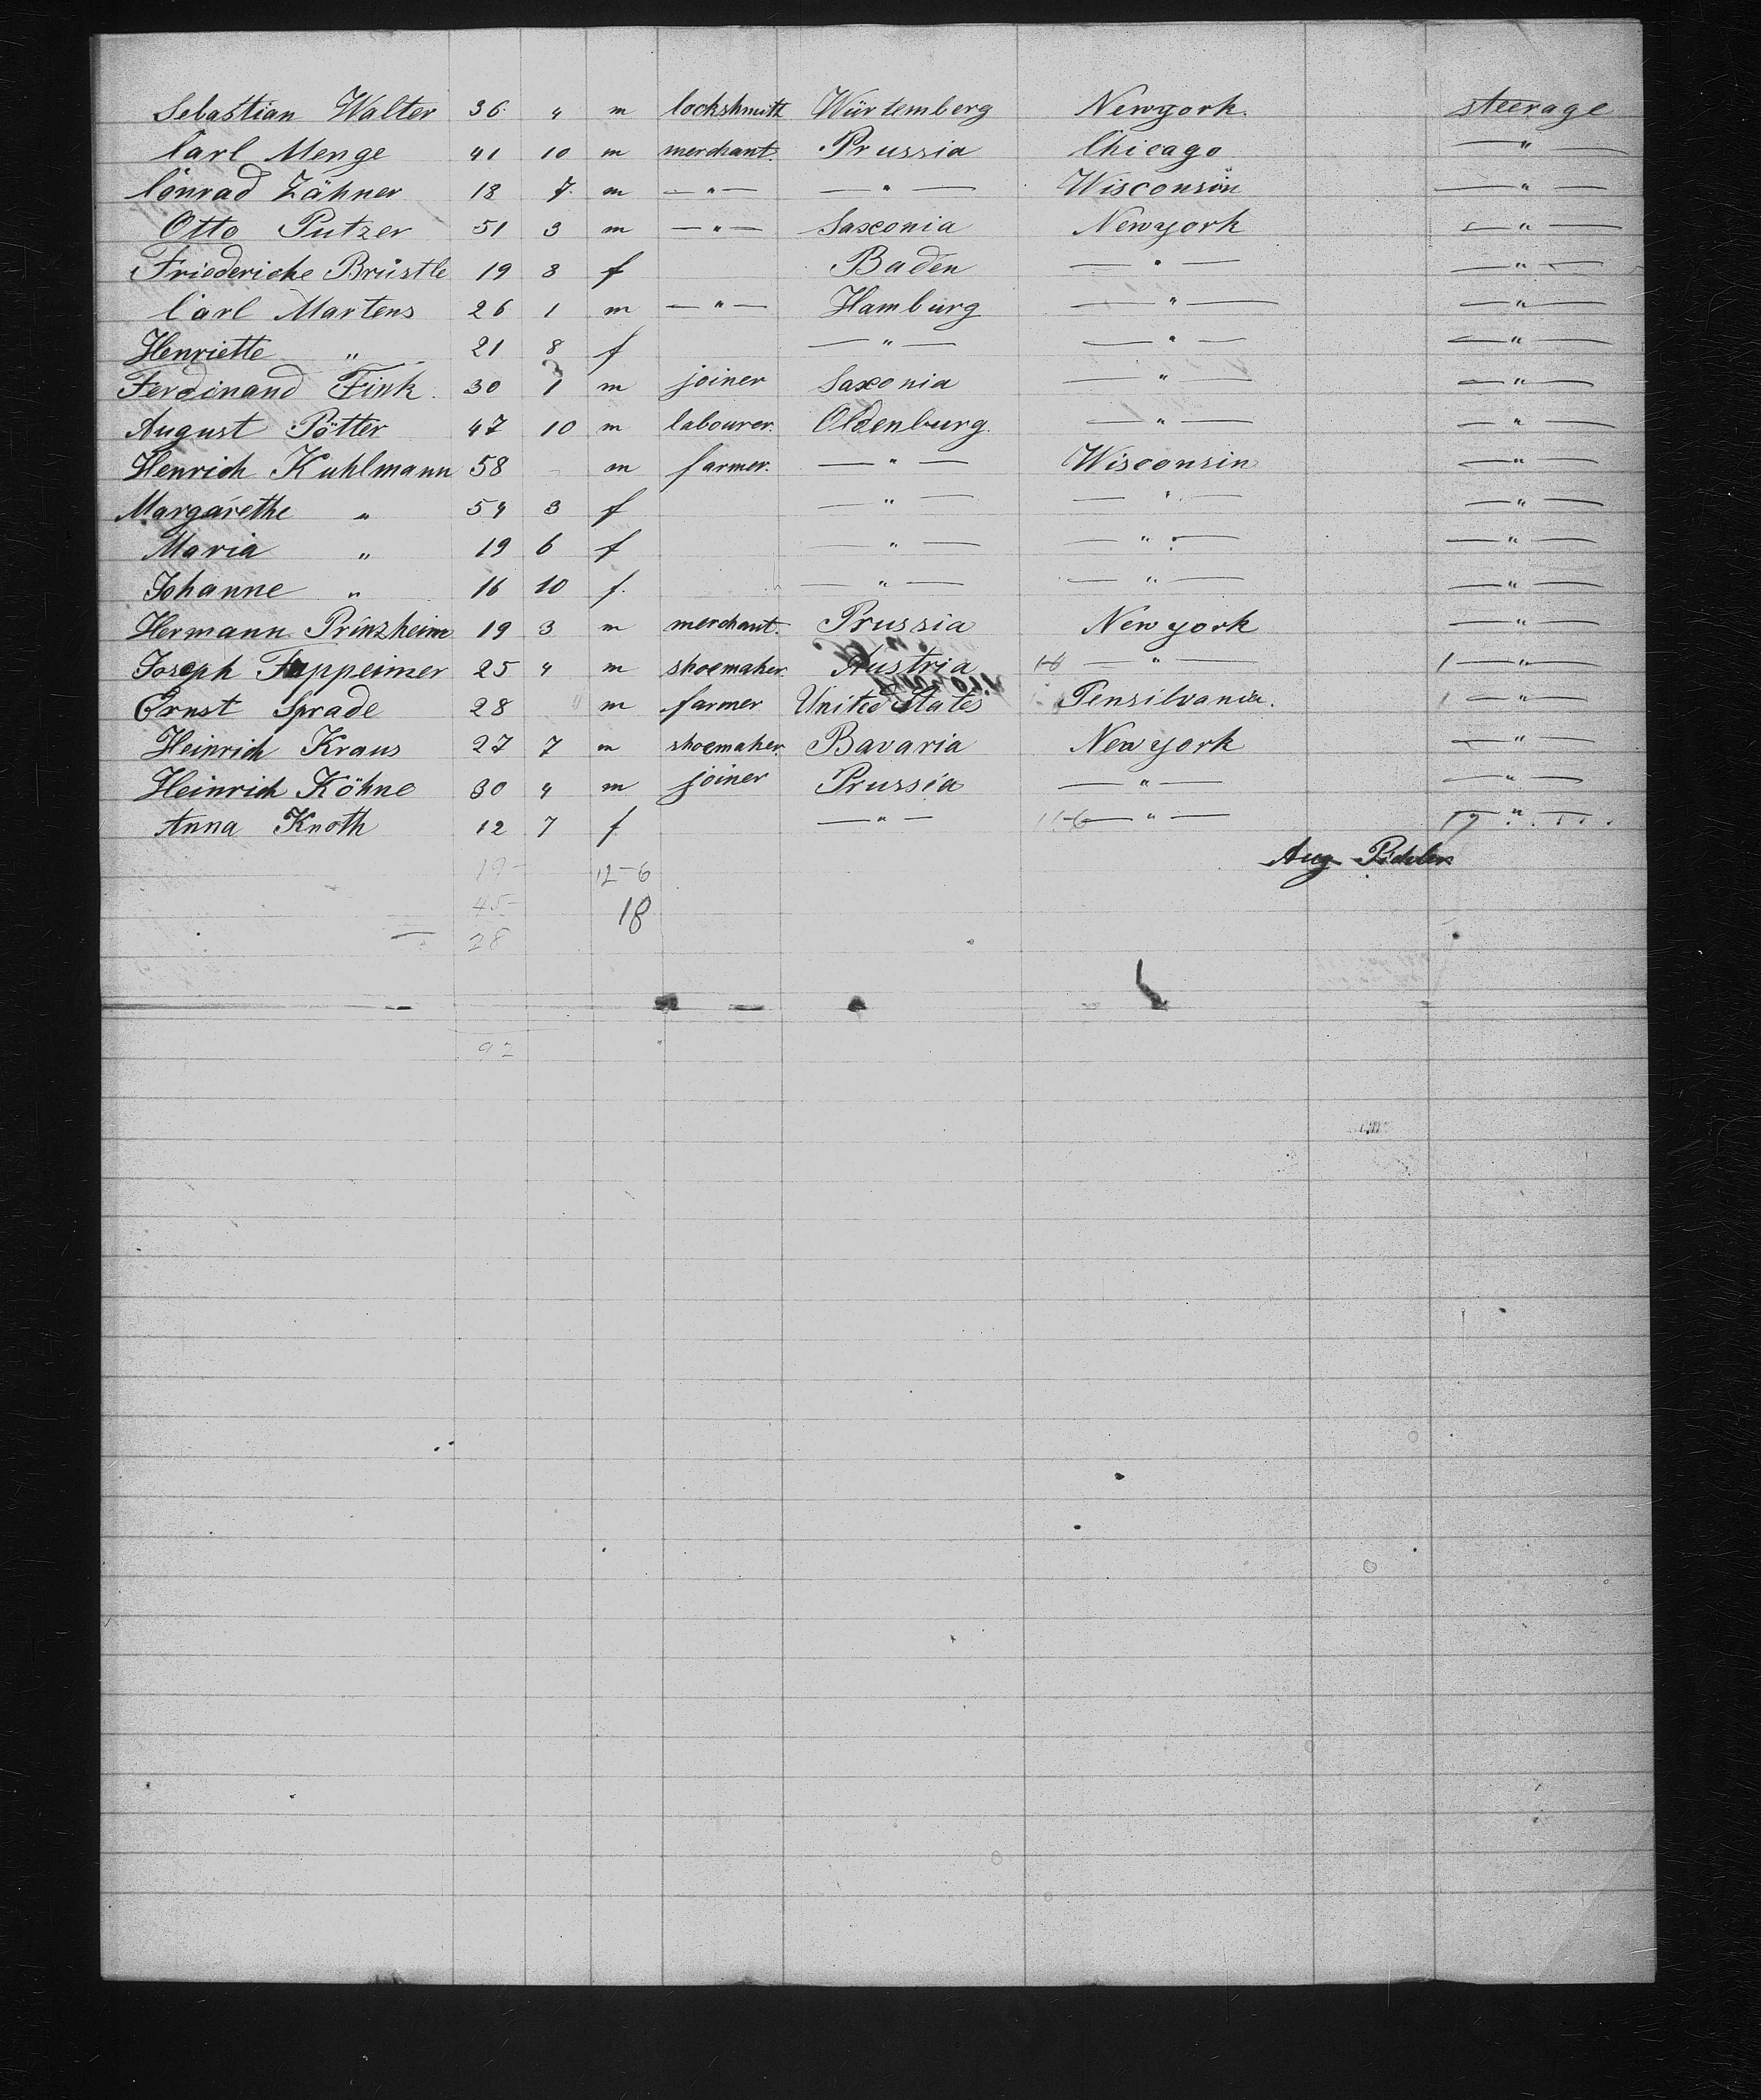 Sebastian Walter 36 " m lockshmith Würtemberg Newyork. steerage
Carl Menge 41 10 m merchant. Prussia Chicago — " —
Conrad Zähner 18 7. m — " — — " — Wisconsin — " —
Otto Putzer 51 3 m — " — Saxonia Newyork — " —
Friedericke Brüstle 19 8 f Baden — " — — " —
Carl Martens 26 1 m — " — Hamburg — " — — " —
Henriette " 21 8 f — " — — " — — " —
Ferdinand Fink. 30 1 m joiner Saxonia — " — — " —
August Pötter 47 10 m labourer. Oldenburg. — " — — " —
Henrich Kuhlmann 58 m farmer. — " — Wisconsin — " —
Margarethe " 54 3 f — " — — " — — " —
Maria " 19 6 f — " — — " — — " —
Johanne " 16 10 f. — " — — " — — " —
Hermann Prinzheim 19 3 m merchant. Prussia New york — " —
Joseph Tappeimer 25 4 m shoemaker. Austria — " — 1 — " —
Ernst Sprade 28 m farmer United States Pensilvania. 1 — " —
Heinrich Kraus 27 7 m shoemaker. Bavaria New york — " —
Heinrich Köhne 30 4 m joiner Prussia — " — — " —
Anna Knoth 12 7 f — " — 11-6 — " — 19 — " —
Aug Pichler
19- 12-6
45- 18
28
92